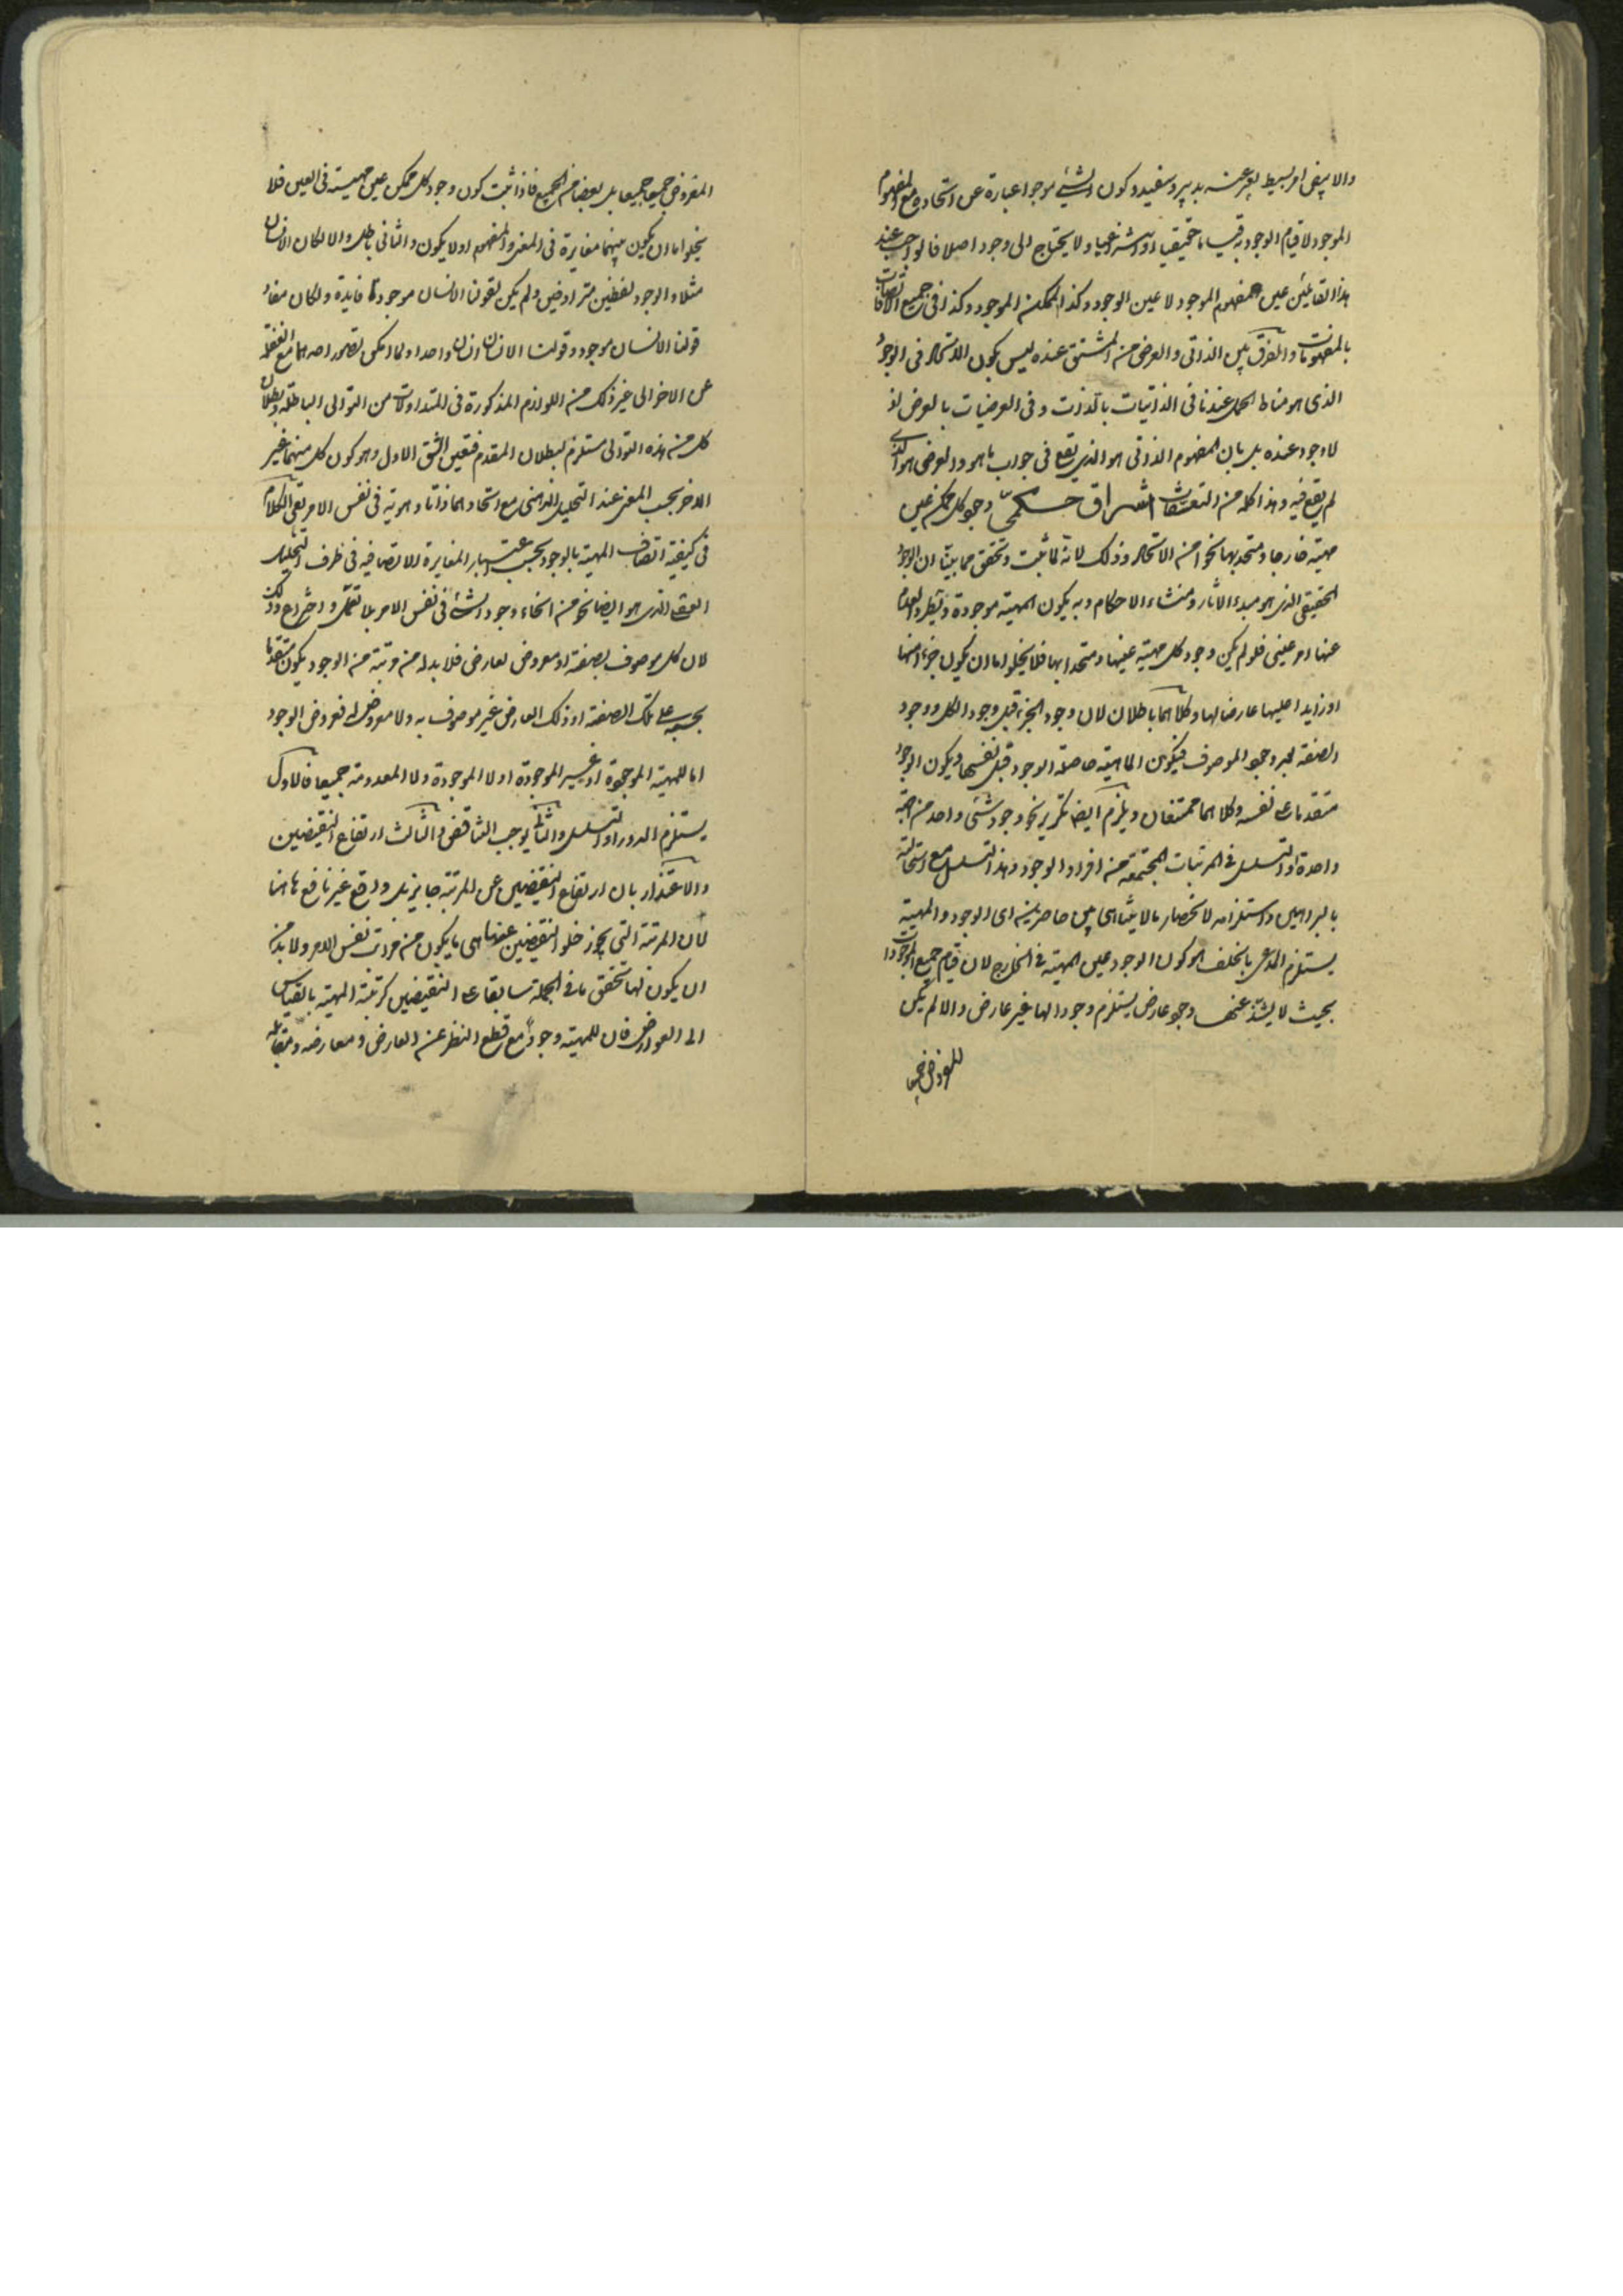 والا يبقى امر بسيط يعبر عنه بدبير وسفيد وكون الشيء موجودا عبارة عن اتحاده مع المفهوم
الموجود لا قيام الوجود به قياما حقيقيا او انتزاعيا ولا يحتاج الى وجود اصلا فالواجب عند
هذا القائل عين مفهوم الموجود لا عين الوجود وكذا الممكن الموجود وكذا في جميع الاتصافات
بالمفهومات والفرق بين الذاتى والعرضى من المشتق عنده ليس بكون الاتحاد في الوجود
الذى هو مناط الحمل عندنا في الذاتيات بالذات وفى العرضيات بالعرض اذ
لا وجود عنده بل بان المفهوم الذاتى هو الذى يقع في جواب ما هو والعرضى هو الذى
لم يقع فيه وهذا كله من التعسفات اشراق حكمى وجود كل ممكن عين
مهيته خارجا ومتحد بها نحوا من الاتحاد وذلك لانه لما ثبت وتحقق مما بينا ان الوجود
الحقيقى الذى هو مبدء الاثار ومنشاء الاحكام وبه يكون المهية موجودة ويطرد العدم
عنها امر عينى فلو لم يكن وجود كل مهية عينها ومتحدا بها فلا يخلوا اما ان يكون جزءا منها
او زايدا عليها عارضا لها وكلاهما باطلان لان وجود الجزء قبل وجود الكل ووجود
الصفة بعد وجود الموصوف فيكون الماهية حاصلة الوجود قبل نفسها ويكون الوجود
متقدما على نفسه وكلاهما ممتنعان ويلزم ايضا تكرير نحو وجود شئ واحد من جهة
واحدة او التسلسل في المرتبات المجتمعة من افراد الوجود وهذا التسلسل مع استحالته
بالبراهين واستلزامه لانحصار ما لا يتناهى بين حاصرين اى الوجود والمهية
يستلزم المدعى بالخلف هو كون الوجود عين المهية في الخارج لان قيام جميع الوجودات
بحيث لا يشذ عنها وجود عارض يستلزم وجودا لها غير عارض والا لم يكن
المفروض جميعا
المفروض جميعا جميعا بل بعضا من الجميع فاذا ثبت كون وجود كل ممكن عين مهيته في العين فلا
يخلوا اما ان يكون بينهما مغايرة في المعنى والمفهوم او لا يكون والثانى باطل والا لكان الانسان
مثلا والوجود لفظين مترادفين ولم يكن لقولنا الانسان موجود فايدة ولكان مفاد
قولنا الانسان موجود وقولنا الانسان انسان واحدا ولما امكن تصور احدهما مع الغفلة
عن الاخر الى غير ذلك من اللوازم المذكورة في المتداولات من التوالى الباطلة وبطلان
كل من هذه التوالى مستلزم لبطلان المقدم فتعين الشق الاول وهو كون كل منهما غير
الاخر بحسب المعنى عند التحليل الذهنى مع اتحادهما ذاتا وهوية في نفس الامر بقى الكلام
في كيفية اتصاف المهية بالوجود بحسب اعتبار المغايرة الاتصافية في ظرف التحليل
العقلى الذى هو ايضا نحو من انحاء وجود الشئ في نفس الامر بلا تعمل واختراع وذلك
لان كل موصوف بصفة او معروض لعارض فلا بد له من مرتبة من الوجود يكون متقدما
بحسبه على تلك الصفة او ذلك العارض غير موصوف به ولا معروض له فعروض الوجود
اما للمهية الموجودة او غير الموجودة او لا الموجودة ولا المعدومة جميعا فالاول
يستلزم الدور او التسلسل والثانى يوجب التناقض والثالث ارتفاع النقيضين
والاعتذار بان ارتفاع النقيضين عن المرتبة جايز بل واقع غير نافع هاهنا
لان المرتبة التى يجوز خلو النقيضين عنها هى ما يكون من مراتب نفس الامر ولا بد من
ان يكون لها تحقق ما في الجملة سابقا على النقيضين كمرتبة المهية بالقياس
الى العوارض فان للمهية وجودا مع قطع النظر عن العارض ومعارضه ومقابله